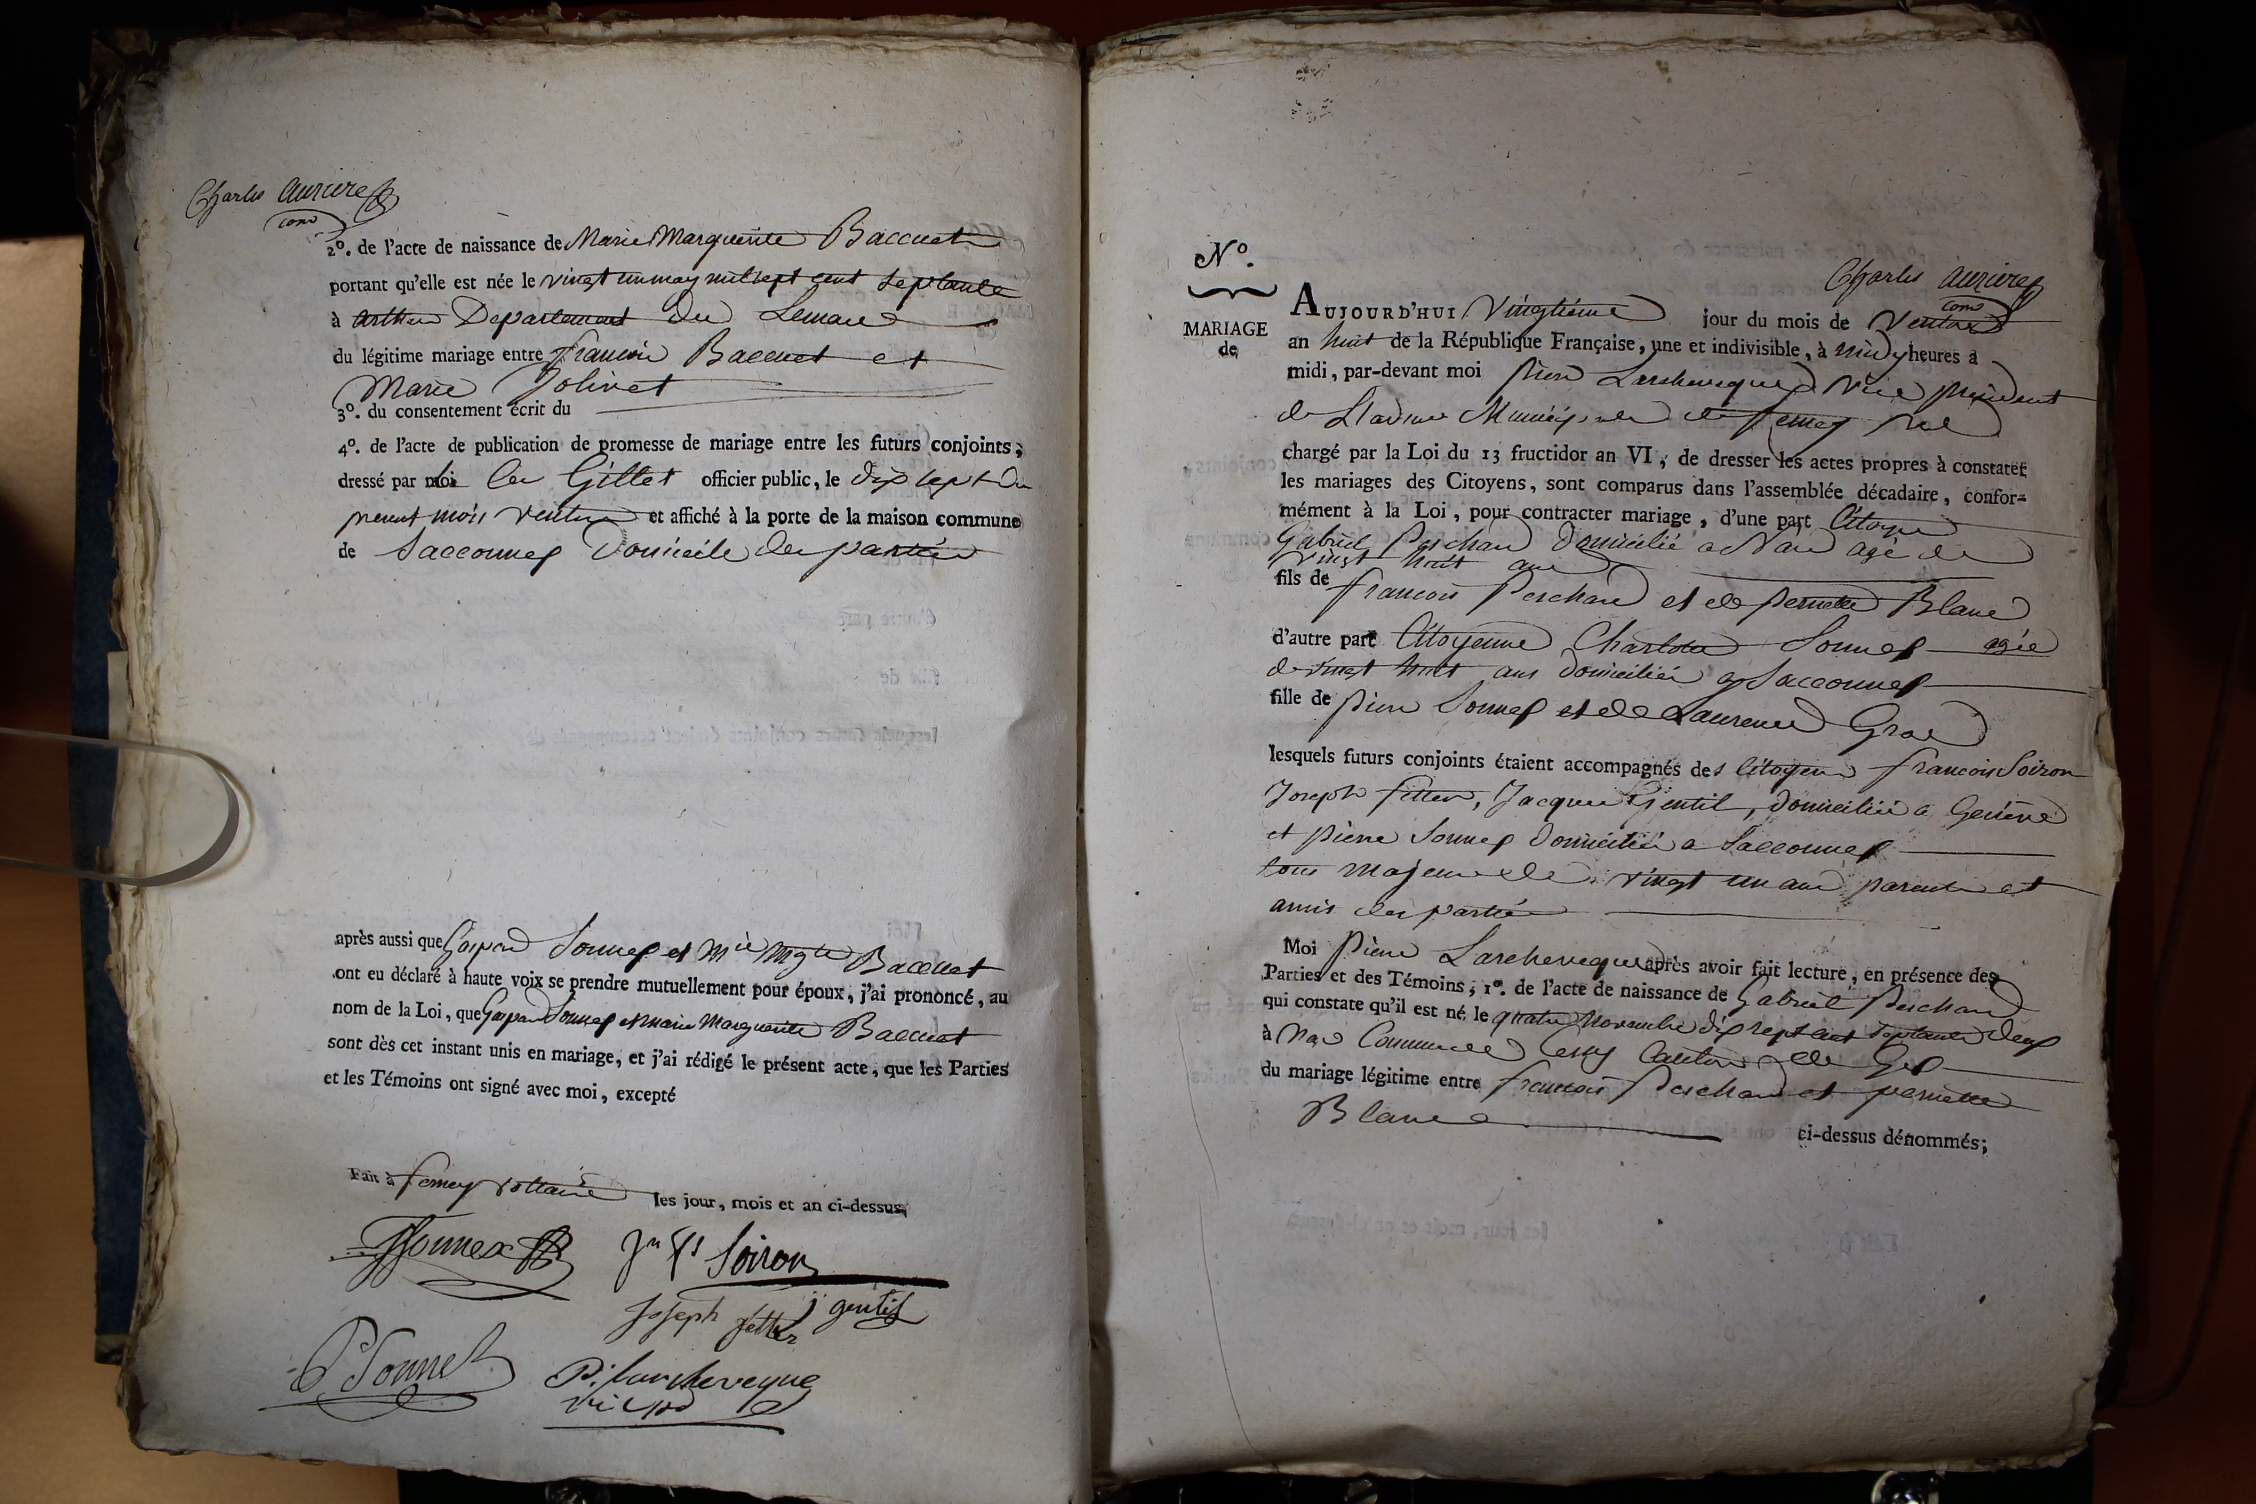 Charles auriere
com
2º. de l'acte de naissance de Marie Marguerite Baccuet
portant qu'elle est née le vingt un may mil sept cent septante
à Departement du Leman
du légitime mariage entre francois Baccuet et
Marie Jolivet
3º. du consentement écrit du
4º. de l'acte de publication de promesse de mariage entre les futurs conjoints,
dressé par moi Gillet officier public, le dix sept du
present mois ventose et affiché à la porte de la maison commune
de Sacconnex Domicile des parties
après aussi que Gaspard Sonnex et Mie Mgte Baccuet
ont eu déclaré à haute voix se prendre mutuellement pour époux, j'ai prononcé, au
nom de la Loi, que Gaspard Sonnex et marie Marguerite Baccuet
sont dès cet instant unis en mariage, et j'ai rédigé le présent acte, que les Parties
et les Témoins ont signé avec moi, excepté
Fait à ferney voltaire les jour, mois et an ci-dessus,
Sonnex Jn Fs Soiron
Joseph fetter j gentil
P Sonnex P. Larcheveque
vice pd
Charles auriere
com
Nº.
MARIAGE
de
AUJOURD'HUI Vingtieme jour du mois de Ventose
an huit de la République Française, une et indivisible, à midy heures à
midi, par-devant moi Pierre Larcheveque Vice president
de Ladme Municipale de ferney
chargé par la Loi du 13 fructidor an VI, de dresser les actes propres à constater
les mariages des Citoyens, sont comparus dans l'assemblée décadaire, confor-
mément à la Loi, pour contracter mariage, d'une part Citoyen
Gabriel Perchard Domicilié a agé de
vingt huit ans
fils de francois Perchard et de pernette Blanc
d'autre part Citoyenne Charlotte Sonnex agée
de vingt huit ans domiciliée a Sacconnex
fille de pierre Sonnex et de Laurence Gros
lesquels futurs conjoints étaient accompagnés des Citoyens francois Soiron
Joseph fetter, Jacques Gentil, domiciliés a Genève
et pierre Sonnex domicilié a Sacconnex
tous majeurs de vingt un ans parents et
amis des parties
Moi pierre Larcheveque après avoir fait lecture, en présence des
Parties et des Témoins, 1º. de l'acte de naissance de Gabriel Perchard
qui constate qu'il est né le quatre Novembre dix sept cent septante deux
à Commune de Cessy Canton de Gex
du mariage légitime entre francois Perchard et pernette
Blanc ci-dessus dénommés;